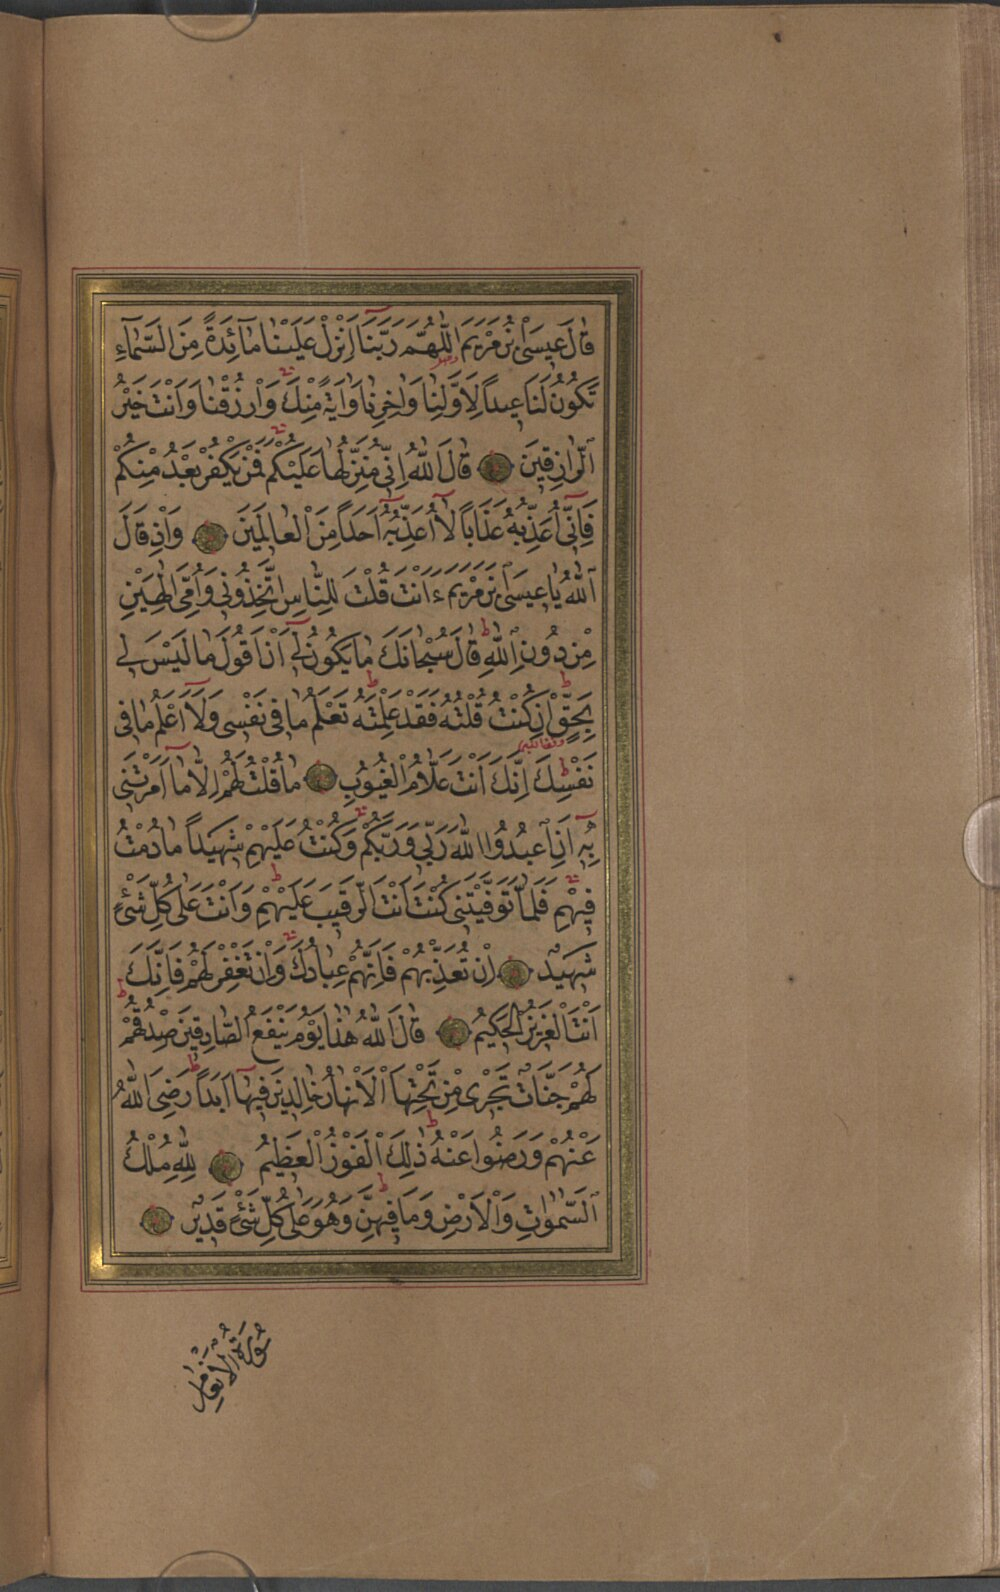 قَالَ عِيسَى ابْنُ مَرْيَمَ اللّٰهُمَّ رَبَّنَا اَنْزِلْ عَلَيْنَا مَآئِدَةً مِنَ السَّمَآءِ
تَكُونُ لَنَا عِيدًا لِاَوَّلِنَا وَاٰخِرِنَا وَاٰيَةً مِنْكَ وَارْزُقْنَا وَاَنْتَ خَيْرُ
الرَّازِقِينَ قَالَ اللّٰهُ اِنِّي مُنَزِّلُهَا عَلَيْكُمْ فَمَنْ يَكْفُرْ بَعْدُ مِنْكُمْ
فَاِنِّي اُعَذِّبُهُ عَذَابًا لَا اُعَذِّبُهُ اَحَدًا مِنَ الْعَالَمِينَ وَاِذْ قَالَ
اللّٰهُ يَا عِيسَى ابْنَ مَرْيَمَ ءَاَنْتَ قُلْتَ لِلنَّاسِ اتَّخِذُونِي وَاُمِّيَ اِلٰهَيْنِ
مِنْ دُونِ اللّٰهِ قَالَ سُبْحَانَكَ مَا يَكُونُ لِي اَنْ اَقُولَ مَا لَيْسَ لِي
بِحَقٍّ اِنْ كُنْتُ قُلْتُهُ فَقَدْ عَلِمْتَهُ تَعْلَمُ مَا فِي نَفْسِي وَلَا اَعْلَمُ مَا فِي
نَفْسِكَ اِنَّكَ اَنْتَ عَلَّامُ الْغُيُوبِ مَا قُلْتُ لَهُمْ اِلَّا مَا اَمَرْتَنِي
بِهِ اَنِ اعْبُدُوا اللّٰهَ رَبِّي وَرَبَّكُمْ وَكُنْتُ عَلَيْهِمْ شَهِيدًا مَا دُمْتُ
فِيهِمْ فَلَمَّا تَوَفَّيْتَنِي كُنْتَ اَنْتَ الرَّقِيبَ عَلَيْهِمْ وَاَنْتَ عَلٰى كُلِّ شَيْءٍ
شَهِيدٌ اِنْ تُعَذِّبْهُمْ فَاِنَّهُمْ عِبَادُكَ وَاِنْ تَغْفِرْ لَهُمْ فَاِنَّكَ
اَنْتَ الْعَزِيزُ الْحَكِيمُ قَالَ اللّٰهُ هٰذَا يَوْمُ يَنْفَعُ الصَّادِقِينَ صِدْقُهُمْ
لَهُمْ جَنَّاتٌ تَجْرِي مِنْ تَحْتِهَا الْاَنْهَارُ خَالِدِينَ فِيهَا اَبَدًا رَضِيَ اللّٰهُ
عَنْهُمْ وَرَضُوا عَنْهُ ذٰلِكَ الْفَوْزُ الْعَظِيمُ لِلّٰهِ مُلْكُ
السَّمٰوَاتِ وَالْاَرْضِ وَمَا فِيهِنَّ وَهُوَ عَلٰى كُلِّ شَيْءٍ قَدِيرٌ
سُورَةُ الْاَنْعَامِ